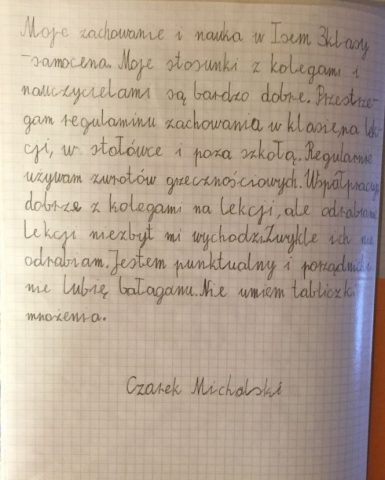 Moje zachowanie i nauka w I sem 3klasy
-samocena. Moje stosunki z kolegami i
nauczycielami są bardzo dobre. Przestrze-
gam regulaminu zachowania w klasie, na lek-
cji, w stołówce i poza szkołą. Regularnie
używam zwrotów grzecznościowych. Współpracuję
dobrze z kolegami na lekcji, ale odrabianie
lekcji niezbyt mi wychodzi. Zwykle ich nie
odrabiam. Jestem punktualny i porządnicki
nie lubię bałaganu. Nie umiem tabliczki
mnożenia.
Czarek Michalski